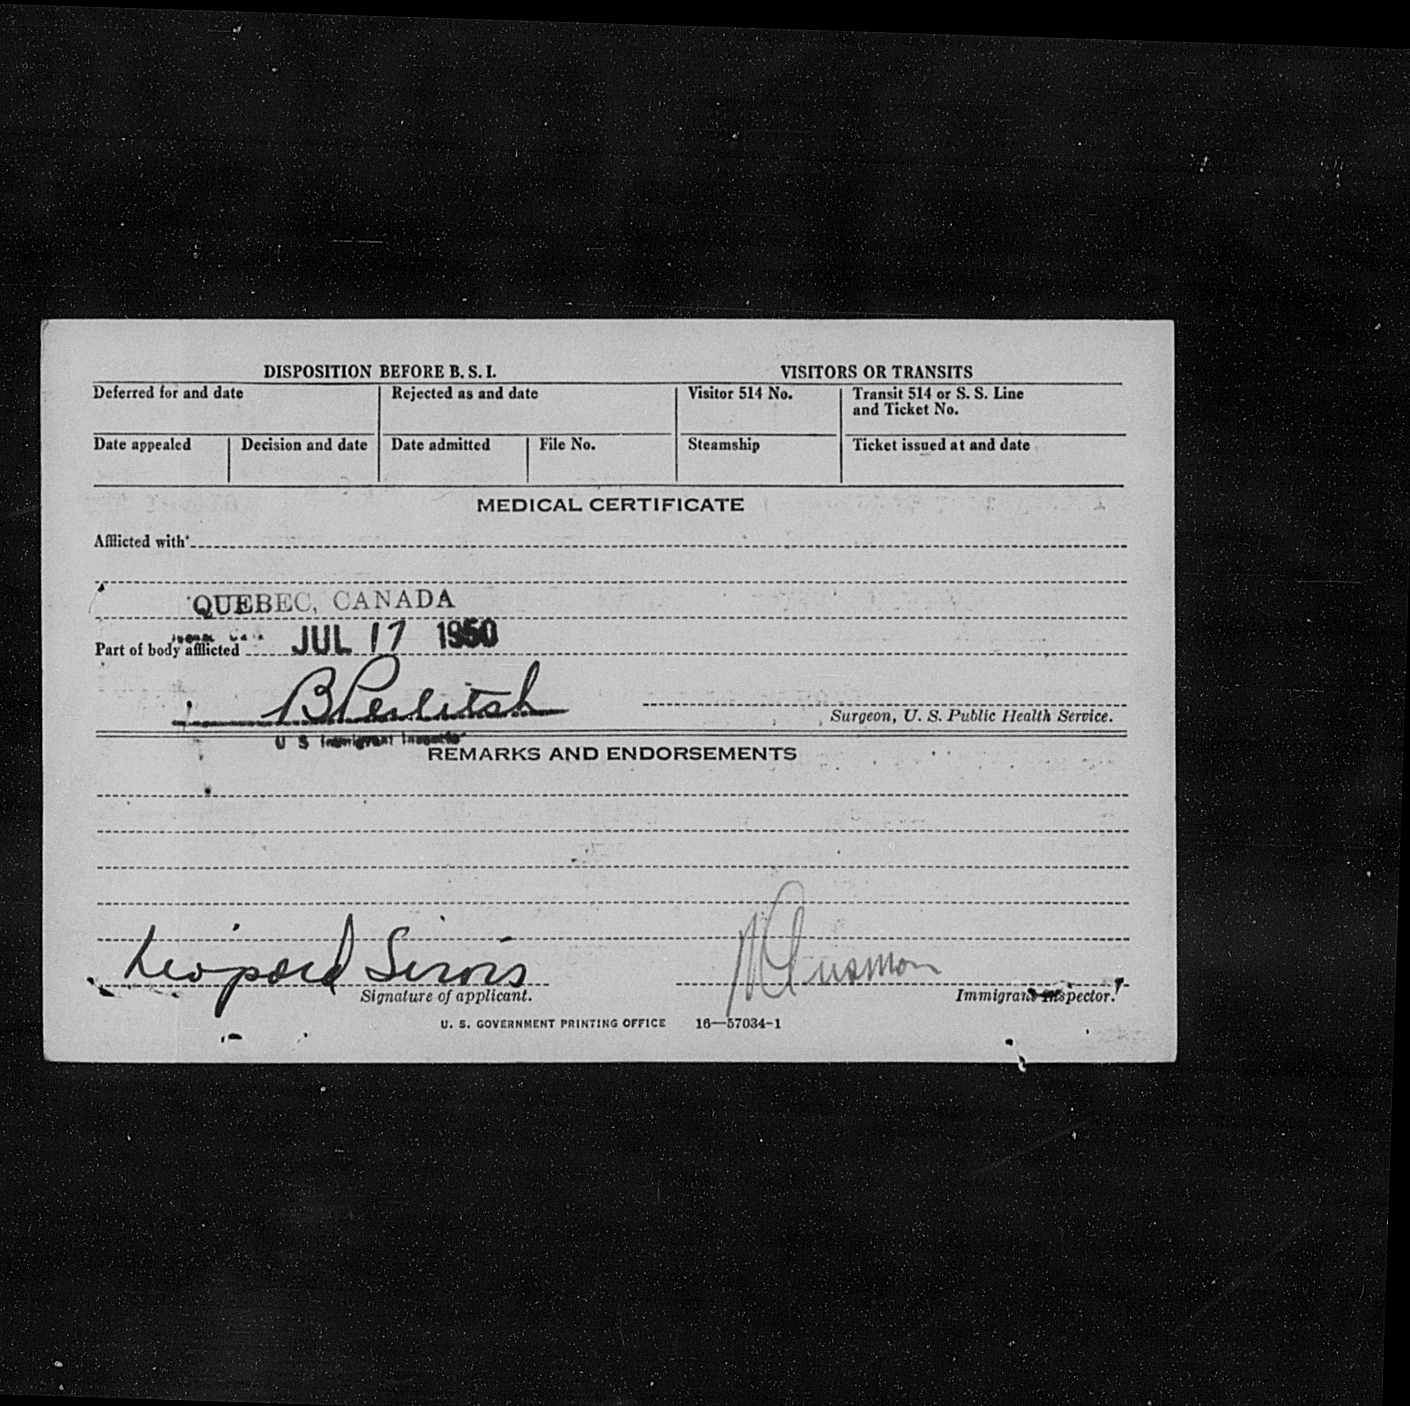 DISPOSITION BEFORE B. S. I. VISITORS OR TRANSITS
Deferred for and date Rejected as and date Visitor 514 No. Transit 514 or S. S. Line
and Ticket No.
Date appealed Decision and date Date admitted File No. Steamship Ticket issued at and date
MEDICAL CERTIFICATE
Afflicted with
QUEBEC, CANADA
Part of body afflicted JUL 17 1950
B Perlitsh
Surgeon, U. S. Public Health Service.
U S Immigrant Inspector
REMARKS AND ENDORSEMENTS
Leopold Sirois
Signature of applicant. Immigrant Inspector.
U. S. GOVERNMENT PRINTING OFFICE 16—57034-1